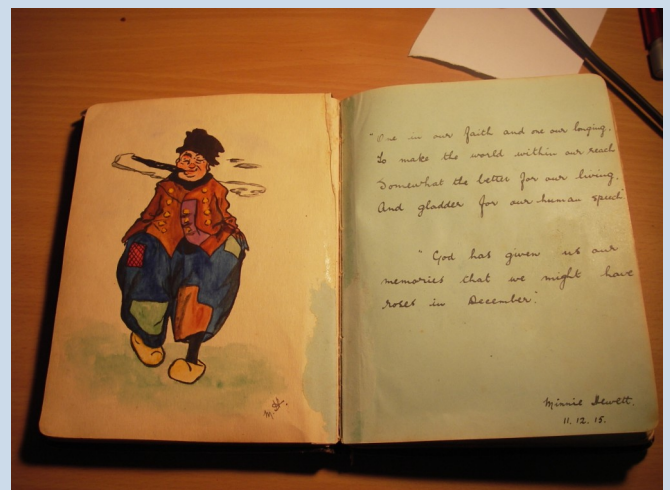 "One in our faith and one our longing.
To make the world within our reach
Somewhat the better for our living.
And gladder for our human speech"
"God has given us our
memories that we might have
roses in December."
Minnie Hewett.
11. 12. 15.